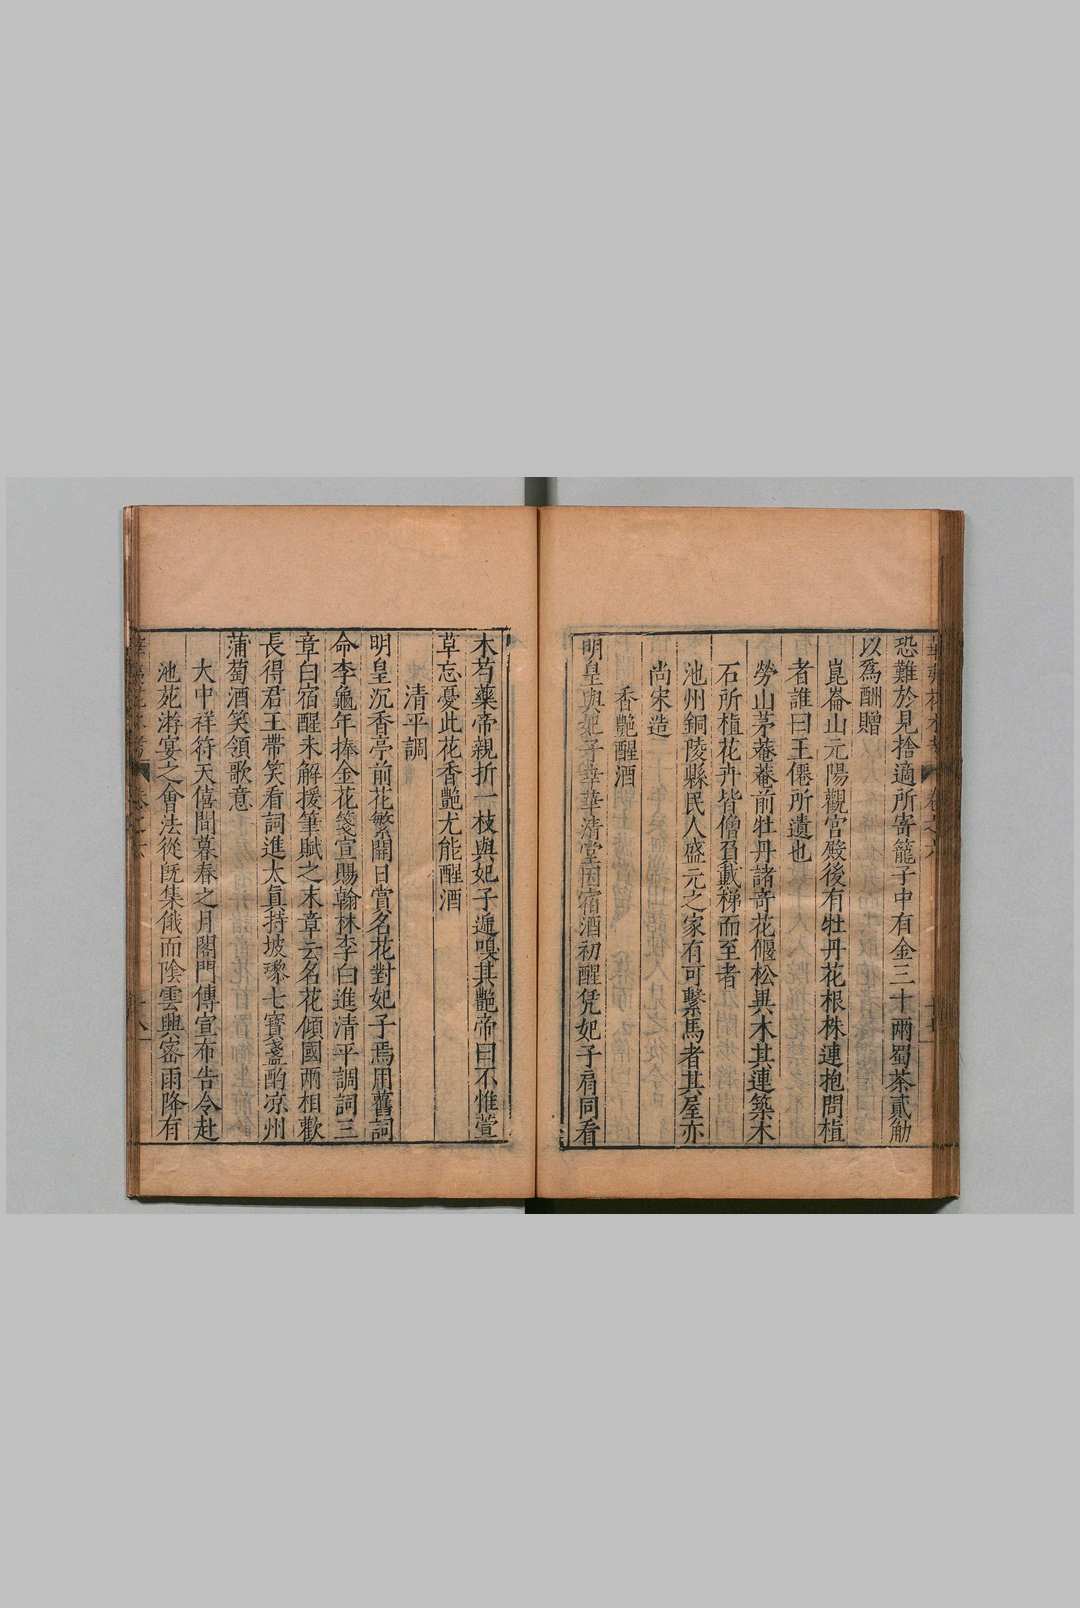 恐難於見捨適所寄籠子中有金三十兩蜀茶貳觔
以爲酬贈
崑崙山元陽觀宫殿後有牡丹花根株連抱問植
者誰曰王僊所遺也
勞山茅菴菴前牡丹諸奇花偃松異木其連築木
石所植花卉皆僧負載梯而至者
池州銅陵縣民人盛元之家有可繫馬者其屋亦
尚宋造
香艶醒酒
明皇與妃子幸華清宫因宿酒初醒凭妃子肩同看
木芍藥帝親折一枝與妃子遞嗅其艶帝曰不惟萱
草忘憂此花香艶尤能醒酒
清平調
明皇沉香亭前花繁開日賞名花對妃子焉用舊詞
命李龜年捧金花箋宣賜翰林李白進清平調詞三
章白宿醒未解援筆賦之末章云名花傾國兩相歡
長得君王帶笑看詞進太眞持玻瓈七寶盞酌凉州
蒲萄酒笑領歌意
大中祥符天僖間暮春之月閤門傳宣布告令赴
池苑游宴之會法從旣集俄而陰雲興密雨降有